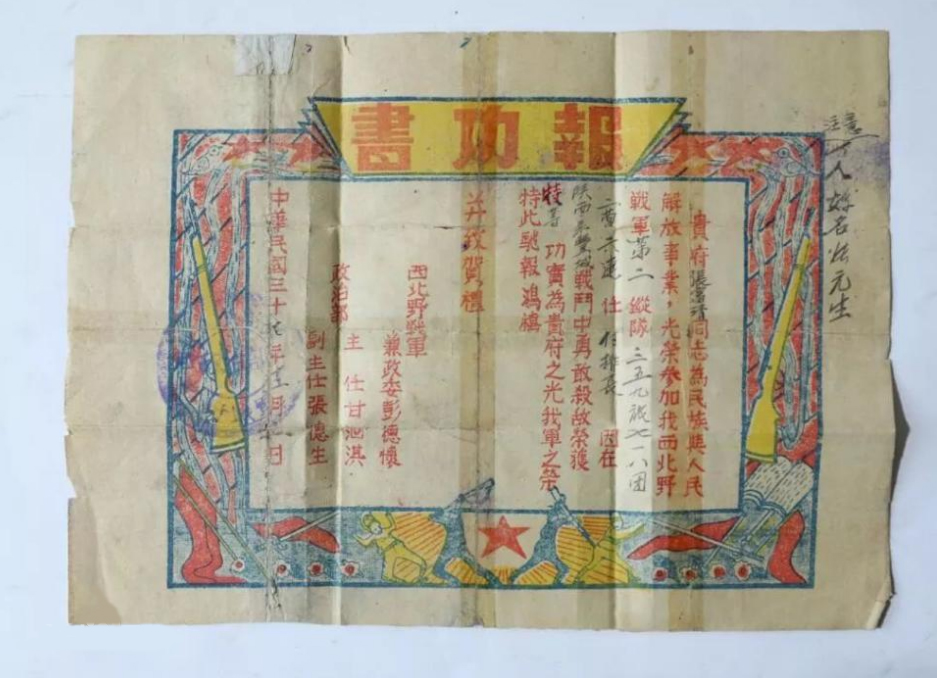 報功書
注意
人姓名
貴府張富清同志為民族與人民
解放事業，光榮參加我西北野
戰軍第二縱隊三五九旅七一八团
六連任排長因在
陝西永豐城戰鬥中勇敢殺敵榮獲
特等功實為貴府之光我軍之榮
特此馳報鴻禧
并致賀禮
西北野戰軍
兼政委彭德懷
政治部
主任甘泗淇
副主任張德生
中華民國三十七年月日